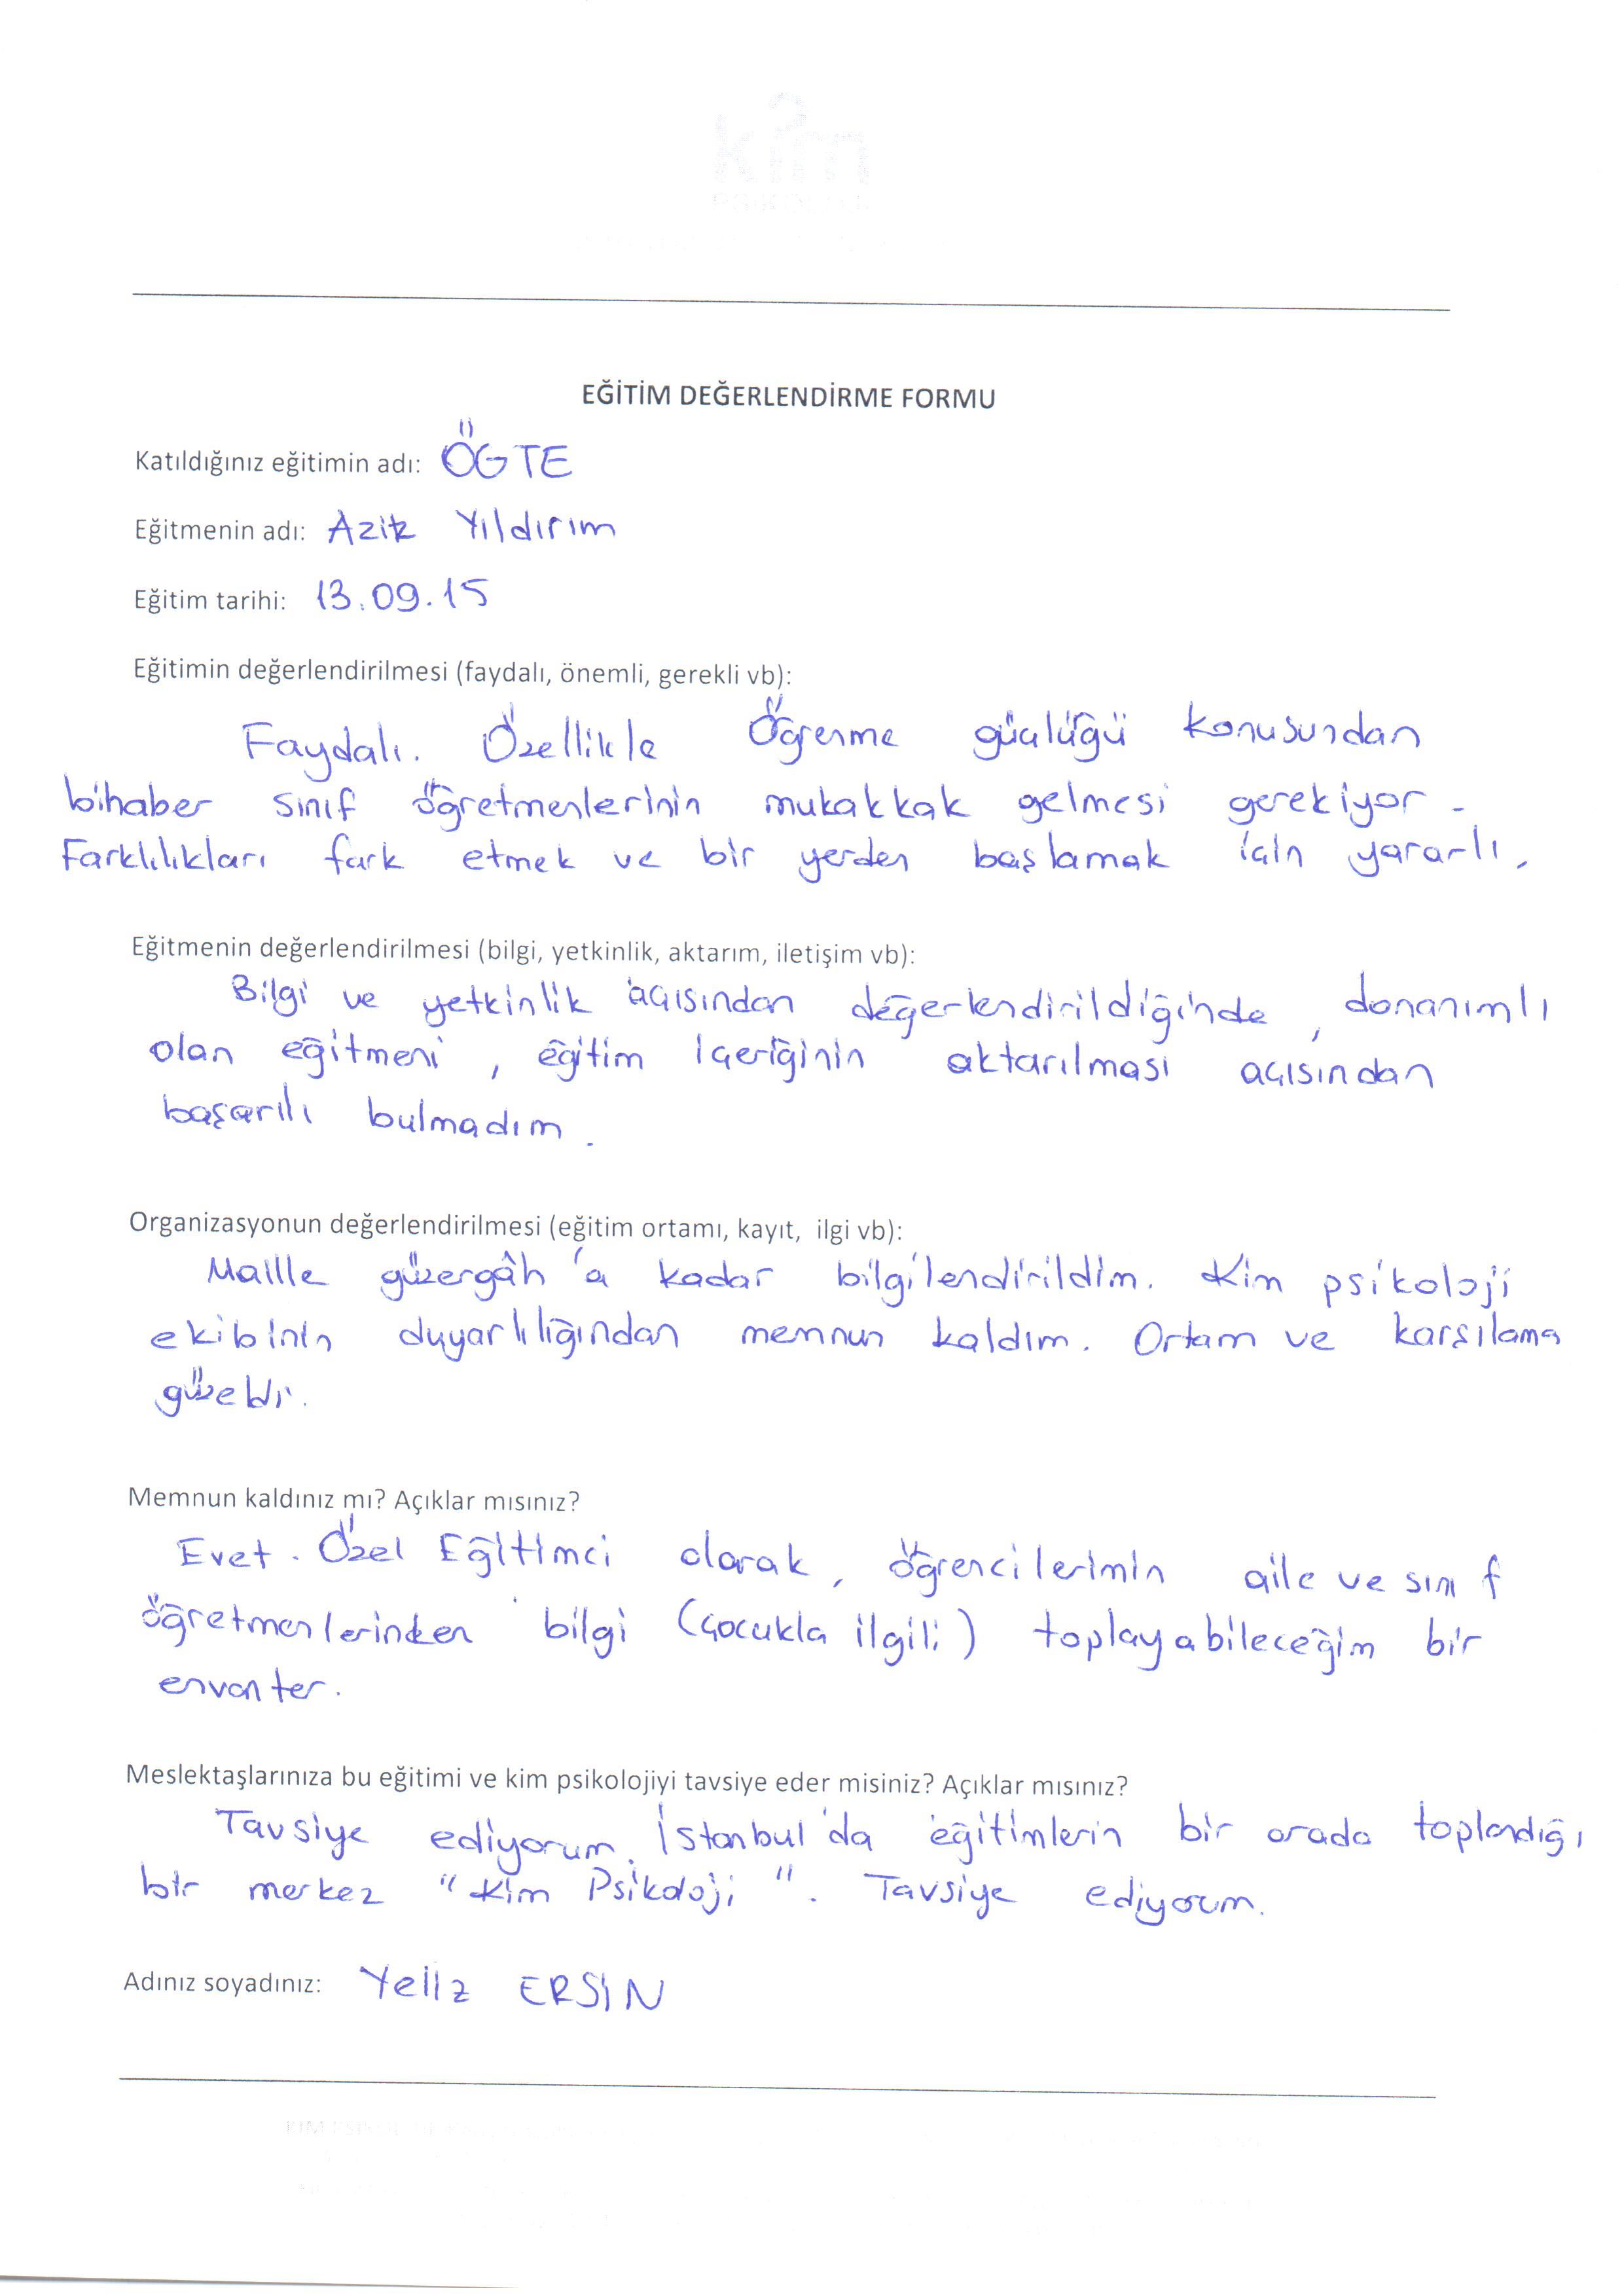 kim
PSİKOLOJİ
EĞİTİM DEĞERLENDİRME FORMU
Katıldığınız eğitimin adı: ÖGTE
Eğitmenin adı: Azik Yıldırım
Eğitim tarihi: 13.09.15
Eğitimin değerlendirilmesi (faydalı, önemli, gerekli vb):
Faydalı. Özellikle Öğrenme güçlüğü konusundan
bihaber sınıf öğretmenlerinin mukakkak gelmesi gerekiyor.
Farklılıkları fark etmek ve bir yerden başlamak için yararlı.
Eğitmenin değerlendirilmesi (bilgi, yetkinlik, aktarım, iletişim vb):
Bilgi ve yetkinlik açısından değerlendirildiğinde, donanımlı
olan eğitmeni, eğitim içeriğinin aktarılması açısından
başarılı bulmadım.
Organizasyonun değerlendirilmesi (eğitim ortamı, kayıt, ilgi vb):
Maille güzergâh'a kadar bilgilendirildim. Kim psikoloji
ekibinin duyarlılığından memnun kaldım. Ortam ve karşılama
güzeldi.
Memnun kaldınız mı? Açıklar mısınız?
Evet. Özel Eğitimci olarak, öğrencilerimin aile ve sınıf
öğretmenlerinden bilgi (çocukla ilgili) toplayabileceğim bir
envanter.
Meslektaşlarınıza bu eğitimi ve kim psikolojiyi tavsiye eder misiniz? Açıklar mısınız?
Tavsiye ediyorum. İstanbul'da eğitimlerin bir arada toplandığı
bir merkez "Kim Psikoloji". Tavsiye ediyorum.
Adınız soyadınız: Yeliz ERSİN